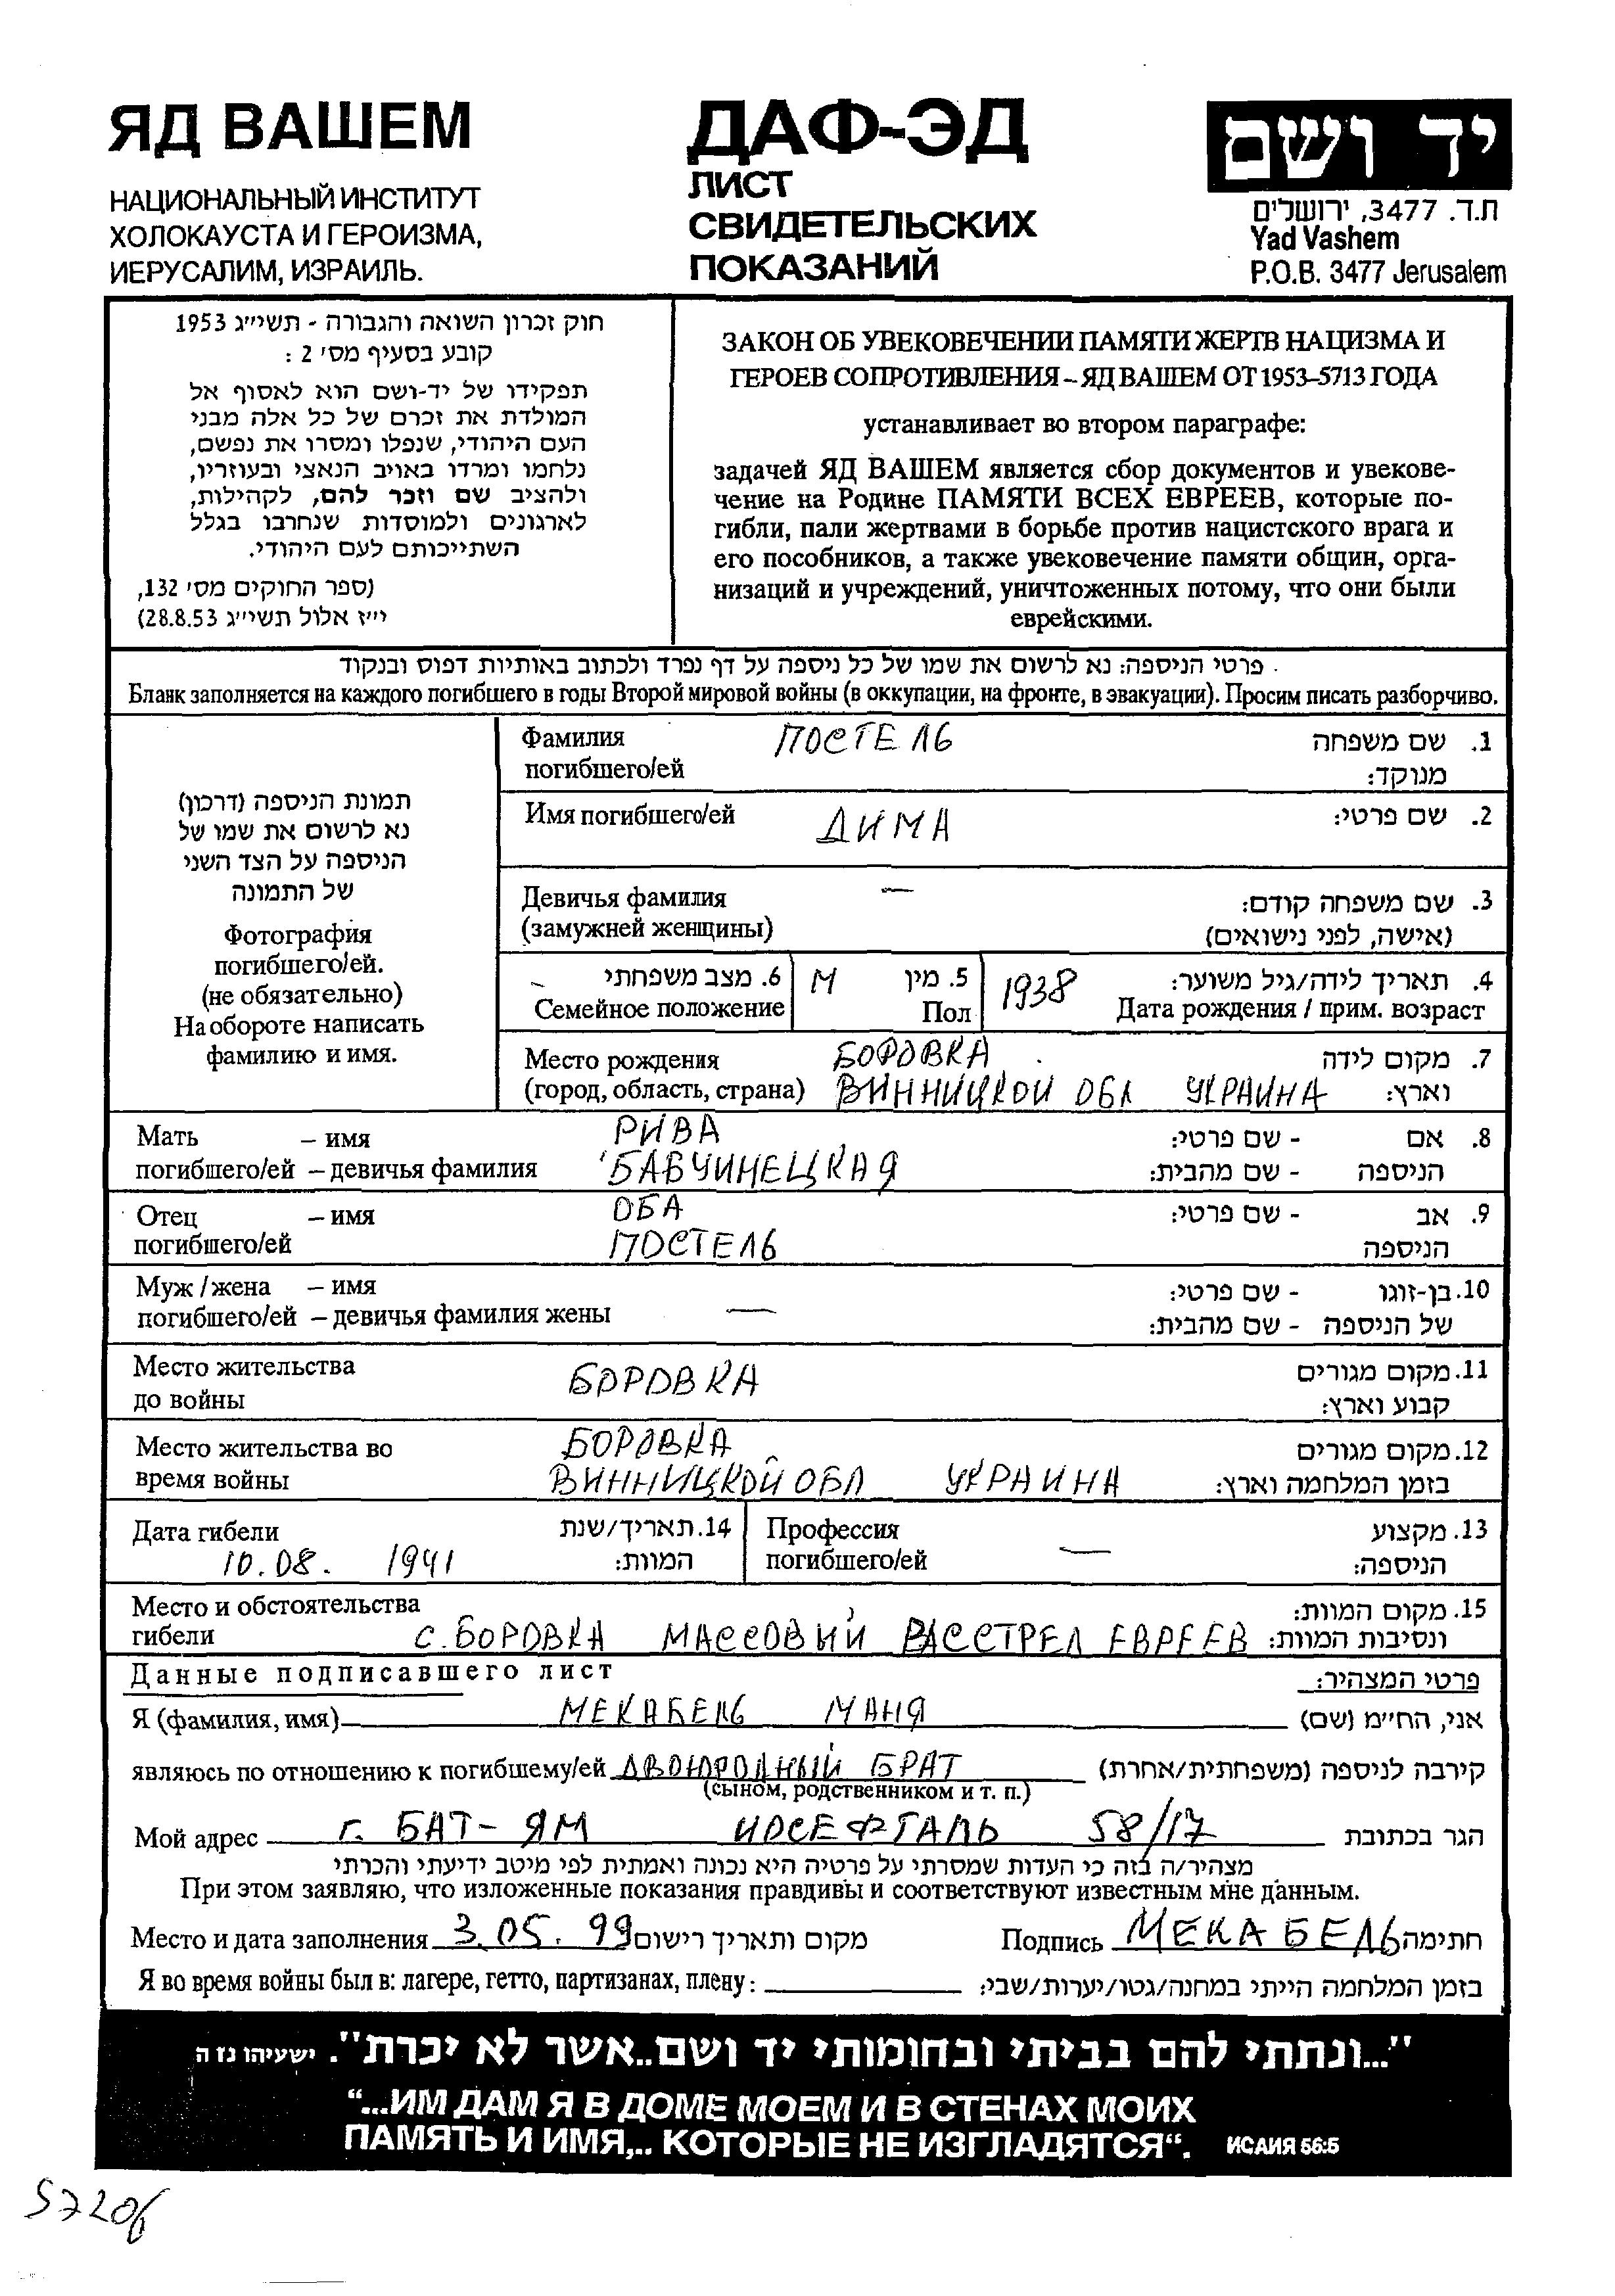 ЯД ВАШЕМ
НАЦИОНАЛЬНЫЙ ИНСТИТУТ
ХОЛОКАУСТА И ГЕРОИЗМА,
ИЕРУСАЛИМ, ИЗРАИЛЬ.
ДАФ-ЭД
ЛИСТ
СВИДЕТЕЛЬСКИХ
ПОКАЗАНИЙ
יד ושם
ת.ד. 3477, ירושלים
Yad Vashem
P.O.B. 3477 Jerusalem
חוק זכרון השואה והגבורה - תשי״ג 1953
קובע בסעיף מס׳ 2 :
תפקידו של יד-ושם הוא לאסוף אל
המולדת את זכרם של כל אלה מבני
העם היהודי, שנפלו ומסרו את נפשם,
נלחמו ומרדו באויב הנאצי ובעוזריו,
ולהציב שם וזכר להם, לקהילות,
לארגונים ולמוסדות שנחרבו בגלל
השתייכותם לעם היהודי.
(ספר החוקים מס׳ 132,
י״ז אלול תשי״ג 28.8.53)
ЗАКОН ОБ УВЕКОВЕЧЕНИИ ПАМЯТИ ЖЕРТВ НАЦИЗМА И
ГЕРОЕВ СОПРОТИВЛЕНИЯ – ЯД ВАШЕМ ОТ 1953–5713 ГОДА
устанавливает во втором параграфе:
задачей ЯД ВАШЕМ является сбор документов и увекове-
чение на Родине ПАМЯТИ ВСЕХ ЕВРЕЕВ, которые по-
гибли, пали жертвами в борьбе против нацистского врага и
его пособников, а также увековечение памяти общин, орга-
низаций и учреждений, уничтоженных потому, что они были
еврейскими.
פרטי הניספה: נא לרשום את שמו של כל ניספה על דף נפרד ולכתוב באותיות דפוס ובנקוד
Бланк заполняется на каждого погибшего в годы Второй мировой войны (в оккупации, на фронте, в эвакуации). Просим писать разборчиво.
תמונת הניספה (דרכון)
נא לרשום את שמו של
הניספה על הצד השני
של התמונה
Фотография
погибшего/ей.
(не обязательно)
На обороте написать
фамилию и имя.
Фамилия ПОСТЕЛЬ 1. שם משפחה
погибшего/ей מנוקד:
Имя погибшего/ей ДИМА 2. שם פרטי:
Девичья фамилия — 3. שם משפחה קודם:
(замужней женщины) (אישה, לפני נישואים)
- 6. מצב משפחתי М 5. מין 1938 4. תאריך לידה/גיל משוער:
Семейное положение Пол Дата рождения / прим. возраст
Место рождения БОРОВКА 7. מקום לידה
(город, область, страна) ВИННИЦКОЙ ОБЛ УКРАИНА וארץ:
Мать – имя РИВА 8. אם - שם פרטי:
погибшего/ей – девичья фамилия БАБЧИНЕЦКАЯ הניספה - שם מהבית:
Отец – имя ОБА 9. אב - שם פרטי:
погибшего/ей ПОСТЕЛЬ הניספה
Муж / жена – имя 10. בן-זוגו - שם פרטי:
погибшего/ей – девичья фамилия жены — של הניספה - שם מהבית:
Место жительства БОРОВКА 11. מקום מגורים
до войны קבוע וארץ:
Место жительства во БОРОВКА 12. מקום מגורים
время войны ВИННИЦКОЙ ОБЛ УКРАИНА בזמן המלחמה וארץ:
Дата гибели 14. תאריך/שנת Профессия 13. מקצוע
10.08. 1941 המוות: погибшего/ей — הניספה:
Место и обстоятельства 15. מקום המוות:
гибели С. БОРОВКА МАССОВЫЙ РАССТРЕЛ ЕВРЕЕВ ונסיבות המוות:
Данные подписавшего лист פרטי המצהיר:
Я (фамилия, имя) МЕКАБЕЛЬ МАНЯ אני, הח״מ (שם)
являюсь по отношению к погибшему/ей ДВОЮРОДНЫЙ БРАТ קירבה לניספה (משפחתית/אחרת)
(сыном, родственником и т. п.)
Мой адрес г. БАТ-ЯМ ИОСЕФТАЛЬ 58/17 הגר בכתובת
מצהיר/ה בזה כי העדות שמסרתי על פרטיה היא נכונה ואמתית לפי מיטב ידיעתי והכרתי
При этом заявляю, что изложенные показания правдивы и соответствуют известным мне данным.
Место и дата заполнения 3.05.99 מקום ותאריך רישום Подпись МЕКАБЕЛЬ חתימה
Я во время войны был в: лагере, гетто, партизанах, плену: בזמן המלחמה הייתי במחנה/גטו/יערות/שבי:
"...ונתתי להם בביתי ובחומותי יד ושם..אשר לא יכרת". ישעיהו נז ה
“...ИМ ДАМ Я В ДОМЕ МОЕМ И В СТЕНАХ МОИХ
ПАМЯТЬ И ИМЯ,.. КОТОРЫЕ НЕ ИЗГЛАДЯТСЯ“. ИСАИЯ 56:5